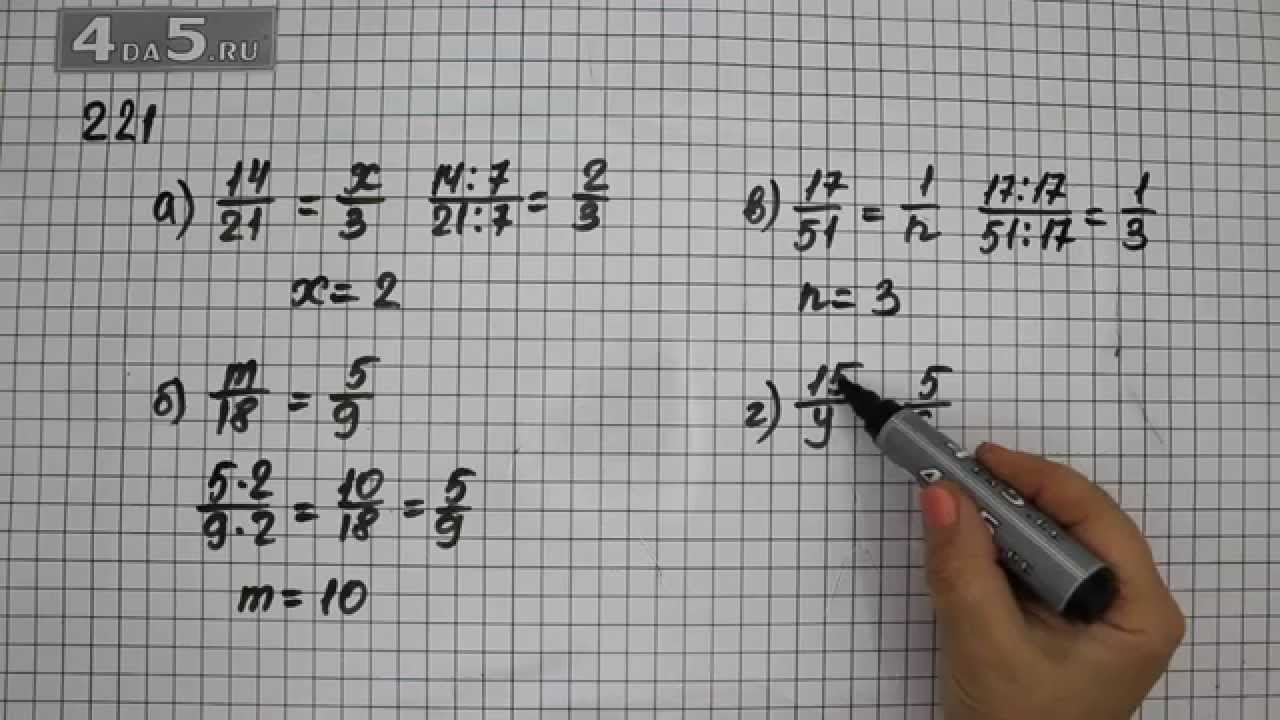 4DA5.RU
221
а) 14/21 = x/3 14:7/21:7 = 2/3
x = 2
б) m/18 = 5/9
5·2/9·2 = 10/18 = 5/9
m = 10
в) 17/51 = 1/n 17:17/51:17 = 1/3
n = 3
г) 15/y 5